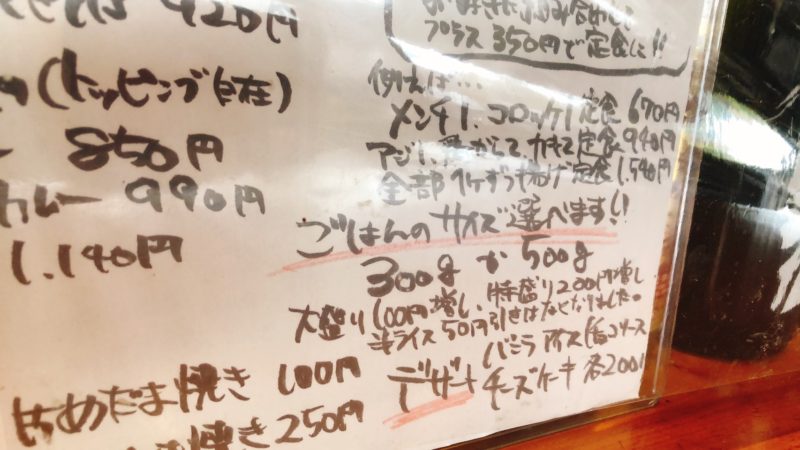 920円
(トッピング自在)
850円
カレー 990円
1,140円
めだま焼き 100円
焼き 250円
プラス350円で定食に!!
例えば…
メンチ1、コロッケ1定食 670円
定食 940円
全部1ケずつ揚げ定食 1,540円
ごはんのサイズ選べます!!
300g か 500g
大盛り100円増し、特盛り200円増し
半ライス50円引きはなくなりました。
デザート バニラアイス
チーズケーキ 各200